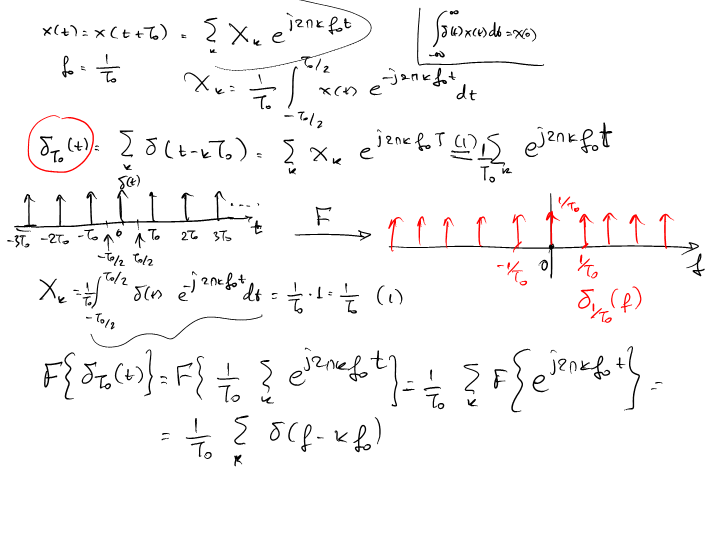 x(t) = x(t+T₀) = Σₖ Xₖ e^{j2πkf₀t}
∫_{-∞}^{∞} δ(t)x(t)dt = x(0)
f₀ = 1/T₀
Xₖ = 1/T₀ ∫_{-T₀/2}^{T₀/2} x(t) e^{-j2πkf₀t} dt
δ_{T₀}(t) = Σₖ δ(t-kT₀) = Σₖ Xₖ e^{j2πkf₀T} =⁽¹⁾ 1/T₀ Σₖ e^{j2πkf₀t}
δ(t)
-3T₀ -2T₀ -T₀ 0 T₀ 2T₀ 3T₀ .... t
-T₀/2 T₀/2
F
1/T₀
-1/T₀ 0 1/T₀ f
δ_{1/T₀}(f)
Xₖ = 1/T₀ ∫_{-T₀/2}^{T₀/2} δ(t) e^{-j2πkf₀t} dt = 1/T₀ · 1 = 1/T₀ (1)
F{δ_{T₀}(t)} = F{1/T₀ Σₖ e^{j2πkf₀t}} = 1/T₀ Σₖ F{e^{j2πkf₀t}} =
= 1/T₀ Σₖ δ(f - kf₀)